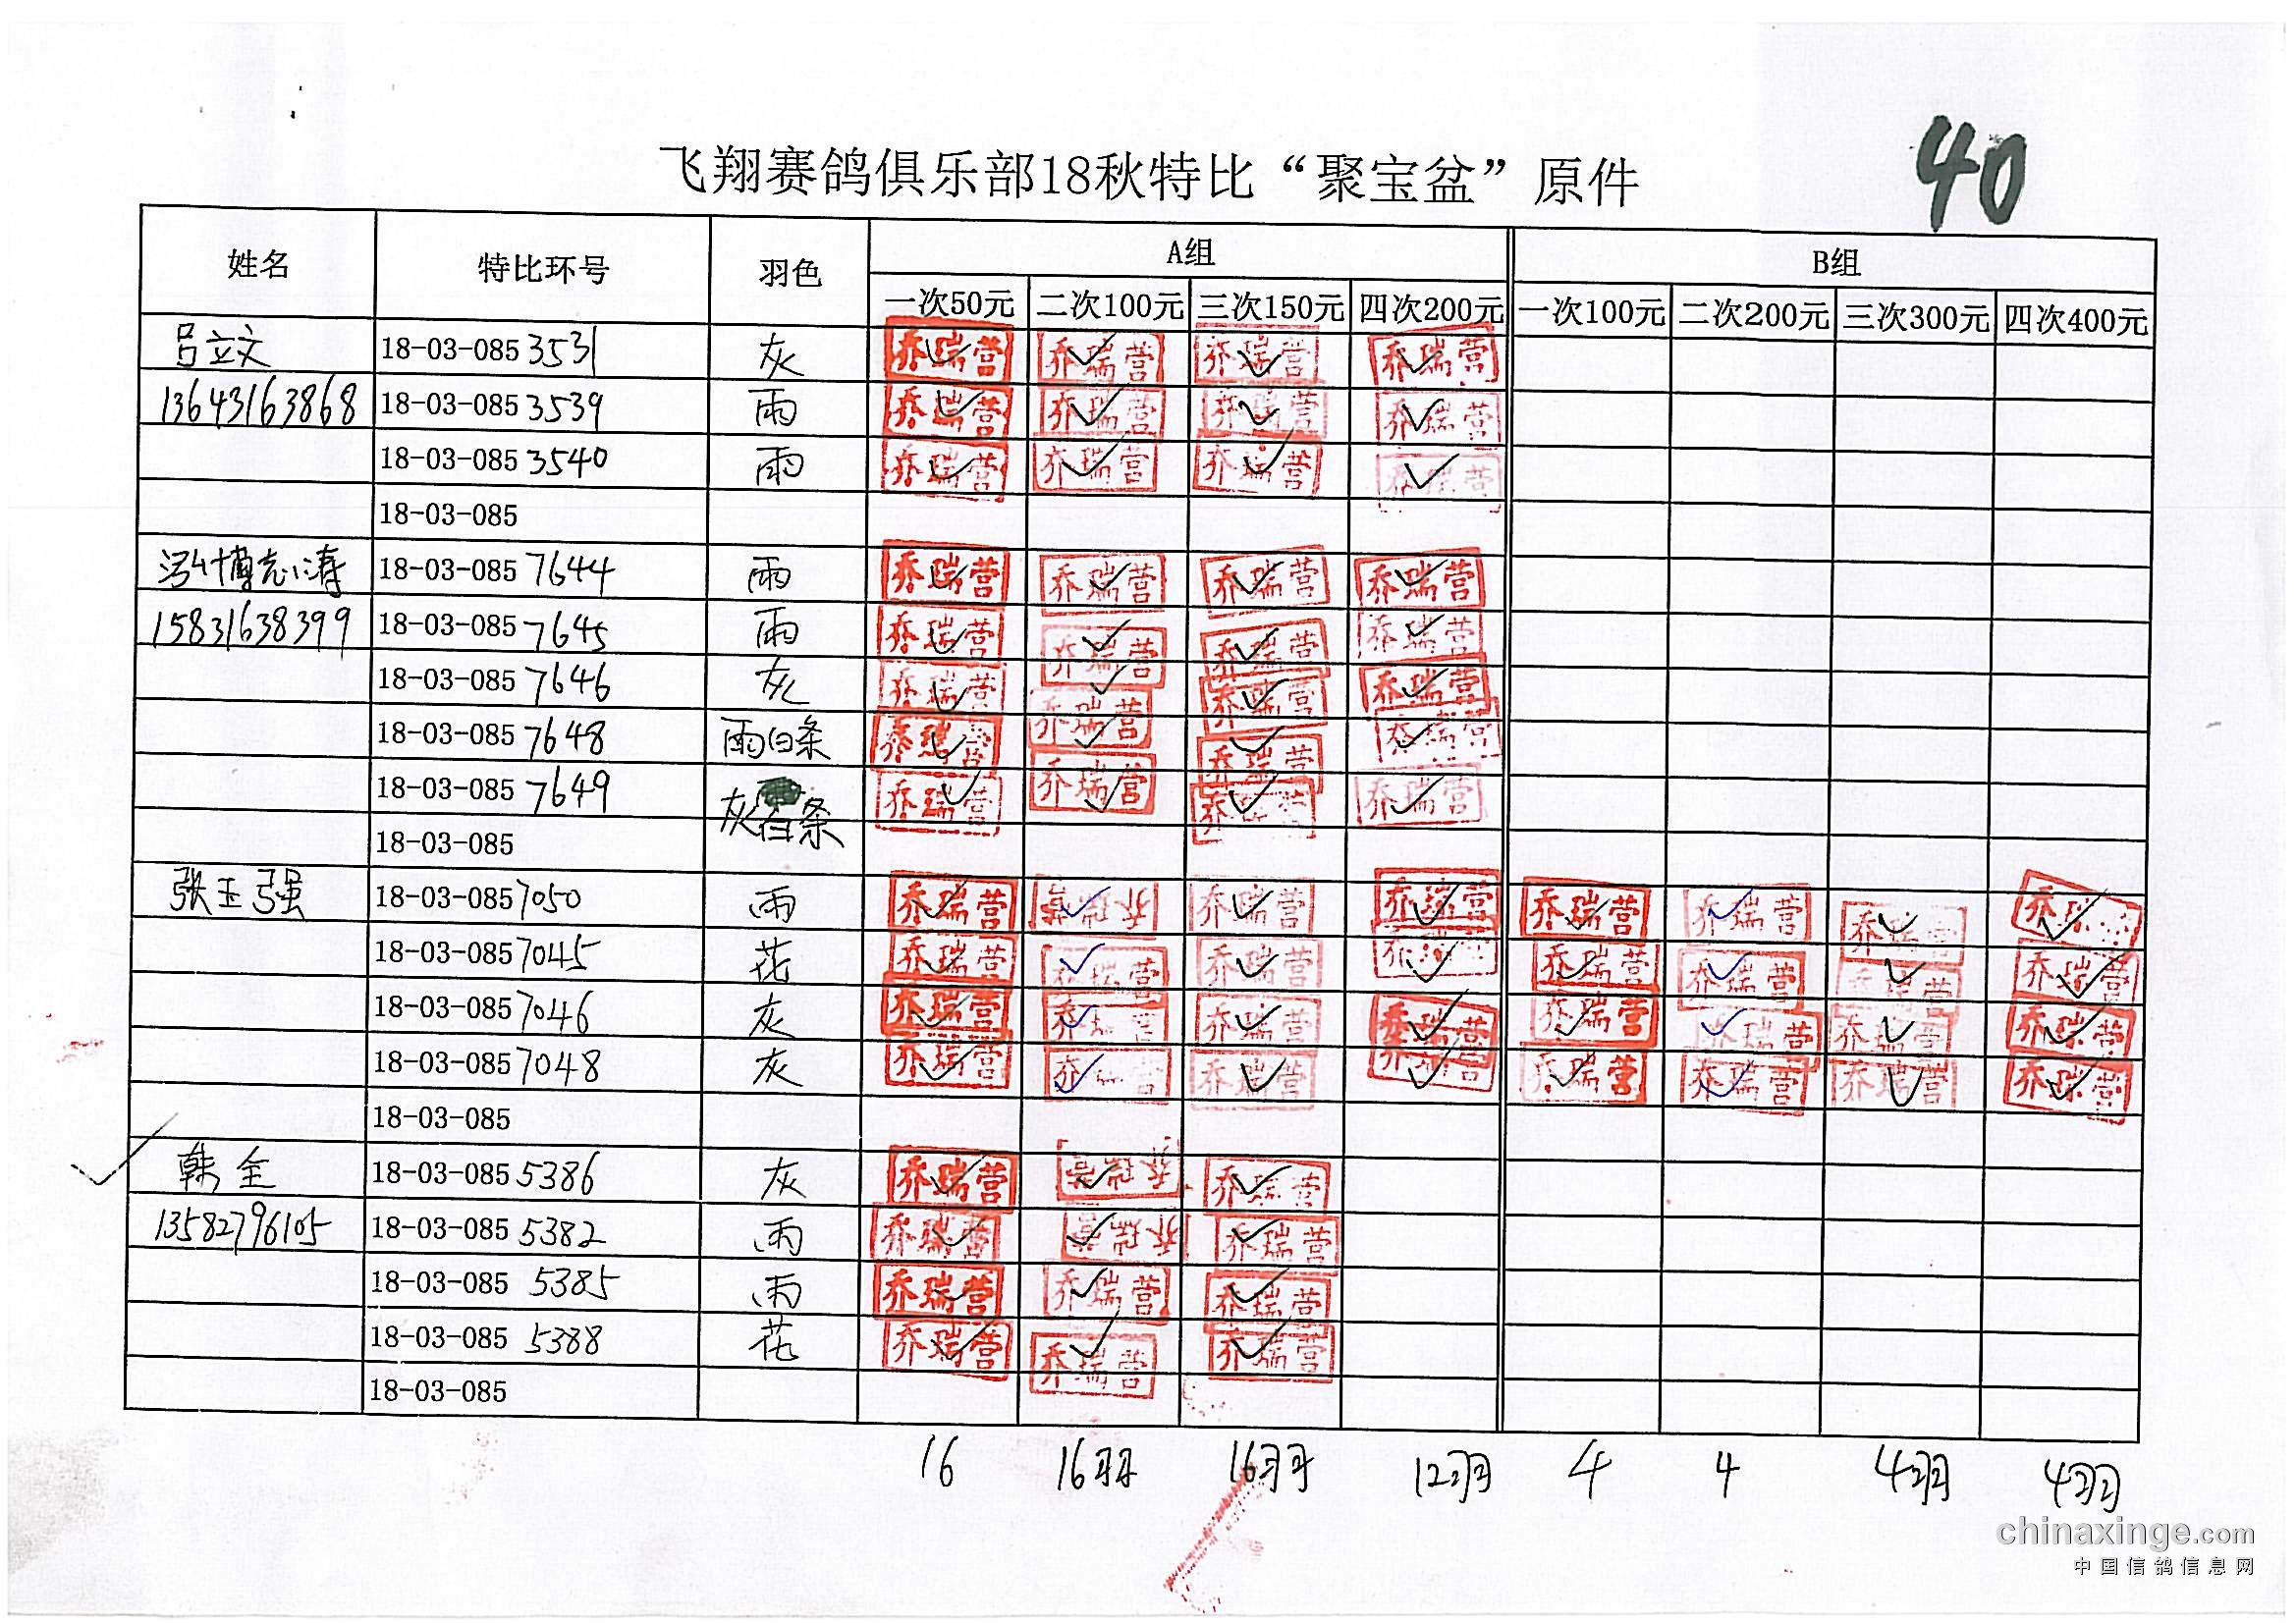 飞翔赛鸽俱乐部18秋特比“聚宝盆”原件
40
姓名 特比环号 羽色 A组 B组
一次50元 二次100元 三次150元 四次200元 一次100元 二次200元 三次300元 四次400元
吕立文 18-03-085 3531 灰 乔瑞营 乔瑞营 乔瑞营 乔瑞营
13643163868 18-03-085 3539 雨 乔瑞营 乔瑞营 乔瑞营 乔瑞营
18-03-085 3540 雨 乔瑞营 乔瑞营 乔瑞营 乔瑞营
18-03-085
博志涛 18-03-085 7644 雨 乔瑞营 乔瑞营 乔瑞营 乔瑞营
15831638399 18-03-085 7645 雨 乔瑞营 乔瑞营 乔瑞营 乔瑞营
18-03-085 7646 灰 乔瑞营 乔瑞营 乔瑞营 乔瑞营
18-03-085 7648 雨白条 乔瑞营 乔瑞营 乔瑞营 乔瑞营
18-03-085 7649 灰白条 乔瑞营 乔瑞营 乔瑞营 乔瑞营
18-03-085
张玉强 18-03-085 7050 雨 乔瑞营 乔瑞营 乔瑞营 乔瑞营 乔瑞营 乔瑞营 乔瑞营 乔瑞营
18-03-085 7045 花 乔瑞营 乔瑞营 乔瑞营 乔瑞营 乔瑞营 乔瑞营 乔瑞营 乔瑞营
18-03-085 7046 灰 乔瑞营 乔瑞营 乔瑞营 乔瑞营 乔瑞营 乔瑞营 乔瑞营 乔瑞营
18-03-085 7048 灰 乔瑞营 乔瑞营 乔瑞营 乔瑞营 乔瑞营 乔瑞营 乔瑞营 乔瑞营
18-03-085
韩全 18-03-085 5386 灰 乔瑞营 乔瑞营 乔瑞营
13582796105 18-03-085 5382 雨 乔瑞营 乔瑞营 乔瑞营
18-03-085 5385 雨 乔瑞营 乔瑞营 乔瑞营
18-03-085 5388 花 乔瑞营 乔瑞营 乔瑞营
18-03-085
16 16羽 16羽 12羽 4 4 4羽 4羽
chinaxinge.com
中国信鸽信息网